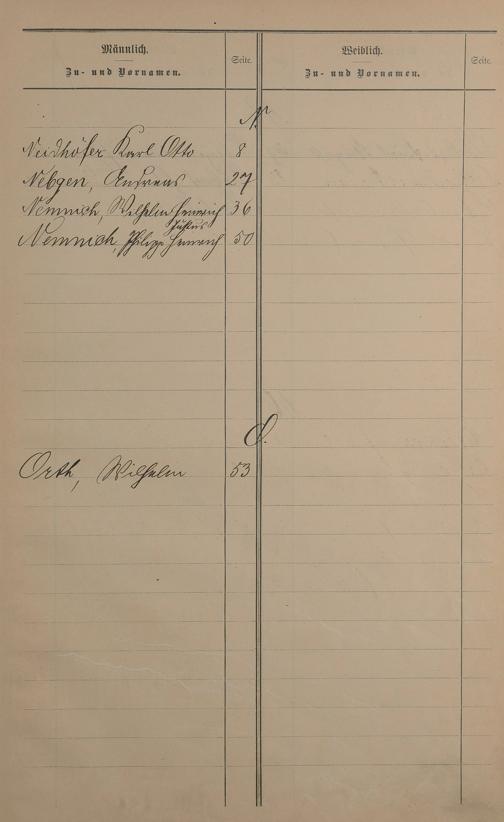 Männlich.
Zu- und Vornamen.
Seite.
Weiblich.
Zu- und Vornamen.
Seite.
N.
Neidhöfer Karl Otto 8
Nebgen, Andreas 27
Nemnich, Wilhelm Heinrich 36
Julius
Nemnich, Philipp Heinrich 50
O.
Orth, Wilhelm 53